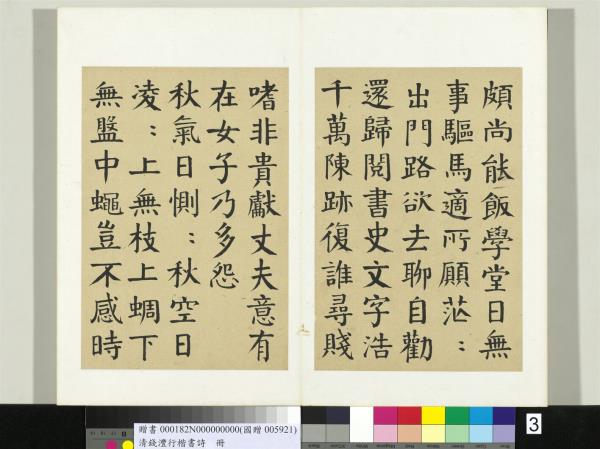 頗尚能飯學堂日無
事驅馬適所願茫〻
出門路欲去聊自勸
還歸閱書史文字浩
千萬陳跡復誰尋賤
嗜非貴獻丈夫意有
在女子乃多怨
秋氣日惻〻秋空日
凌〻上無枝上蜩下
無盤中蠅豈不感時
贈書 000182N000000000(國贈 005921)
清錢澧行楷書詩 冊
3